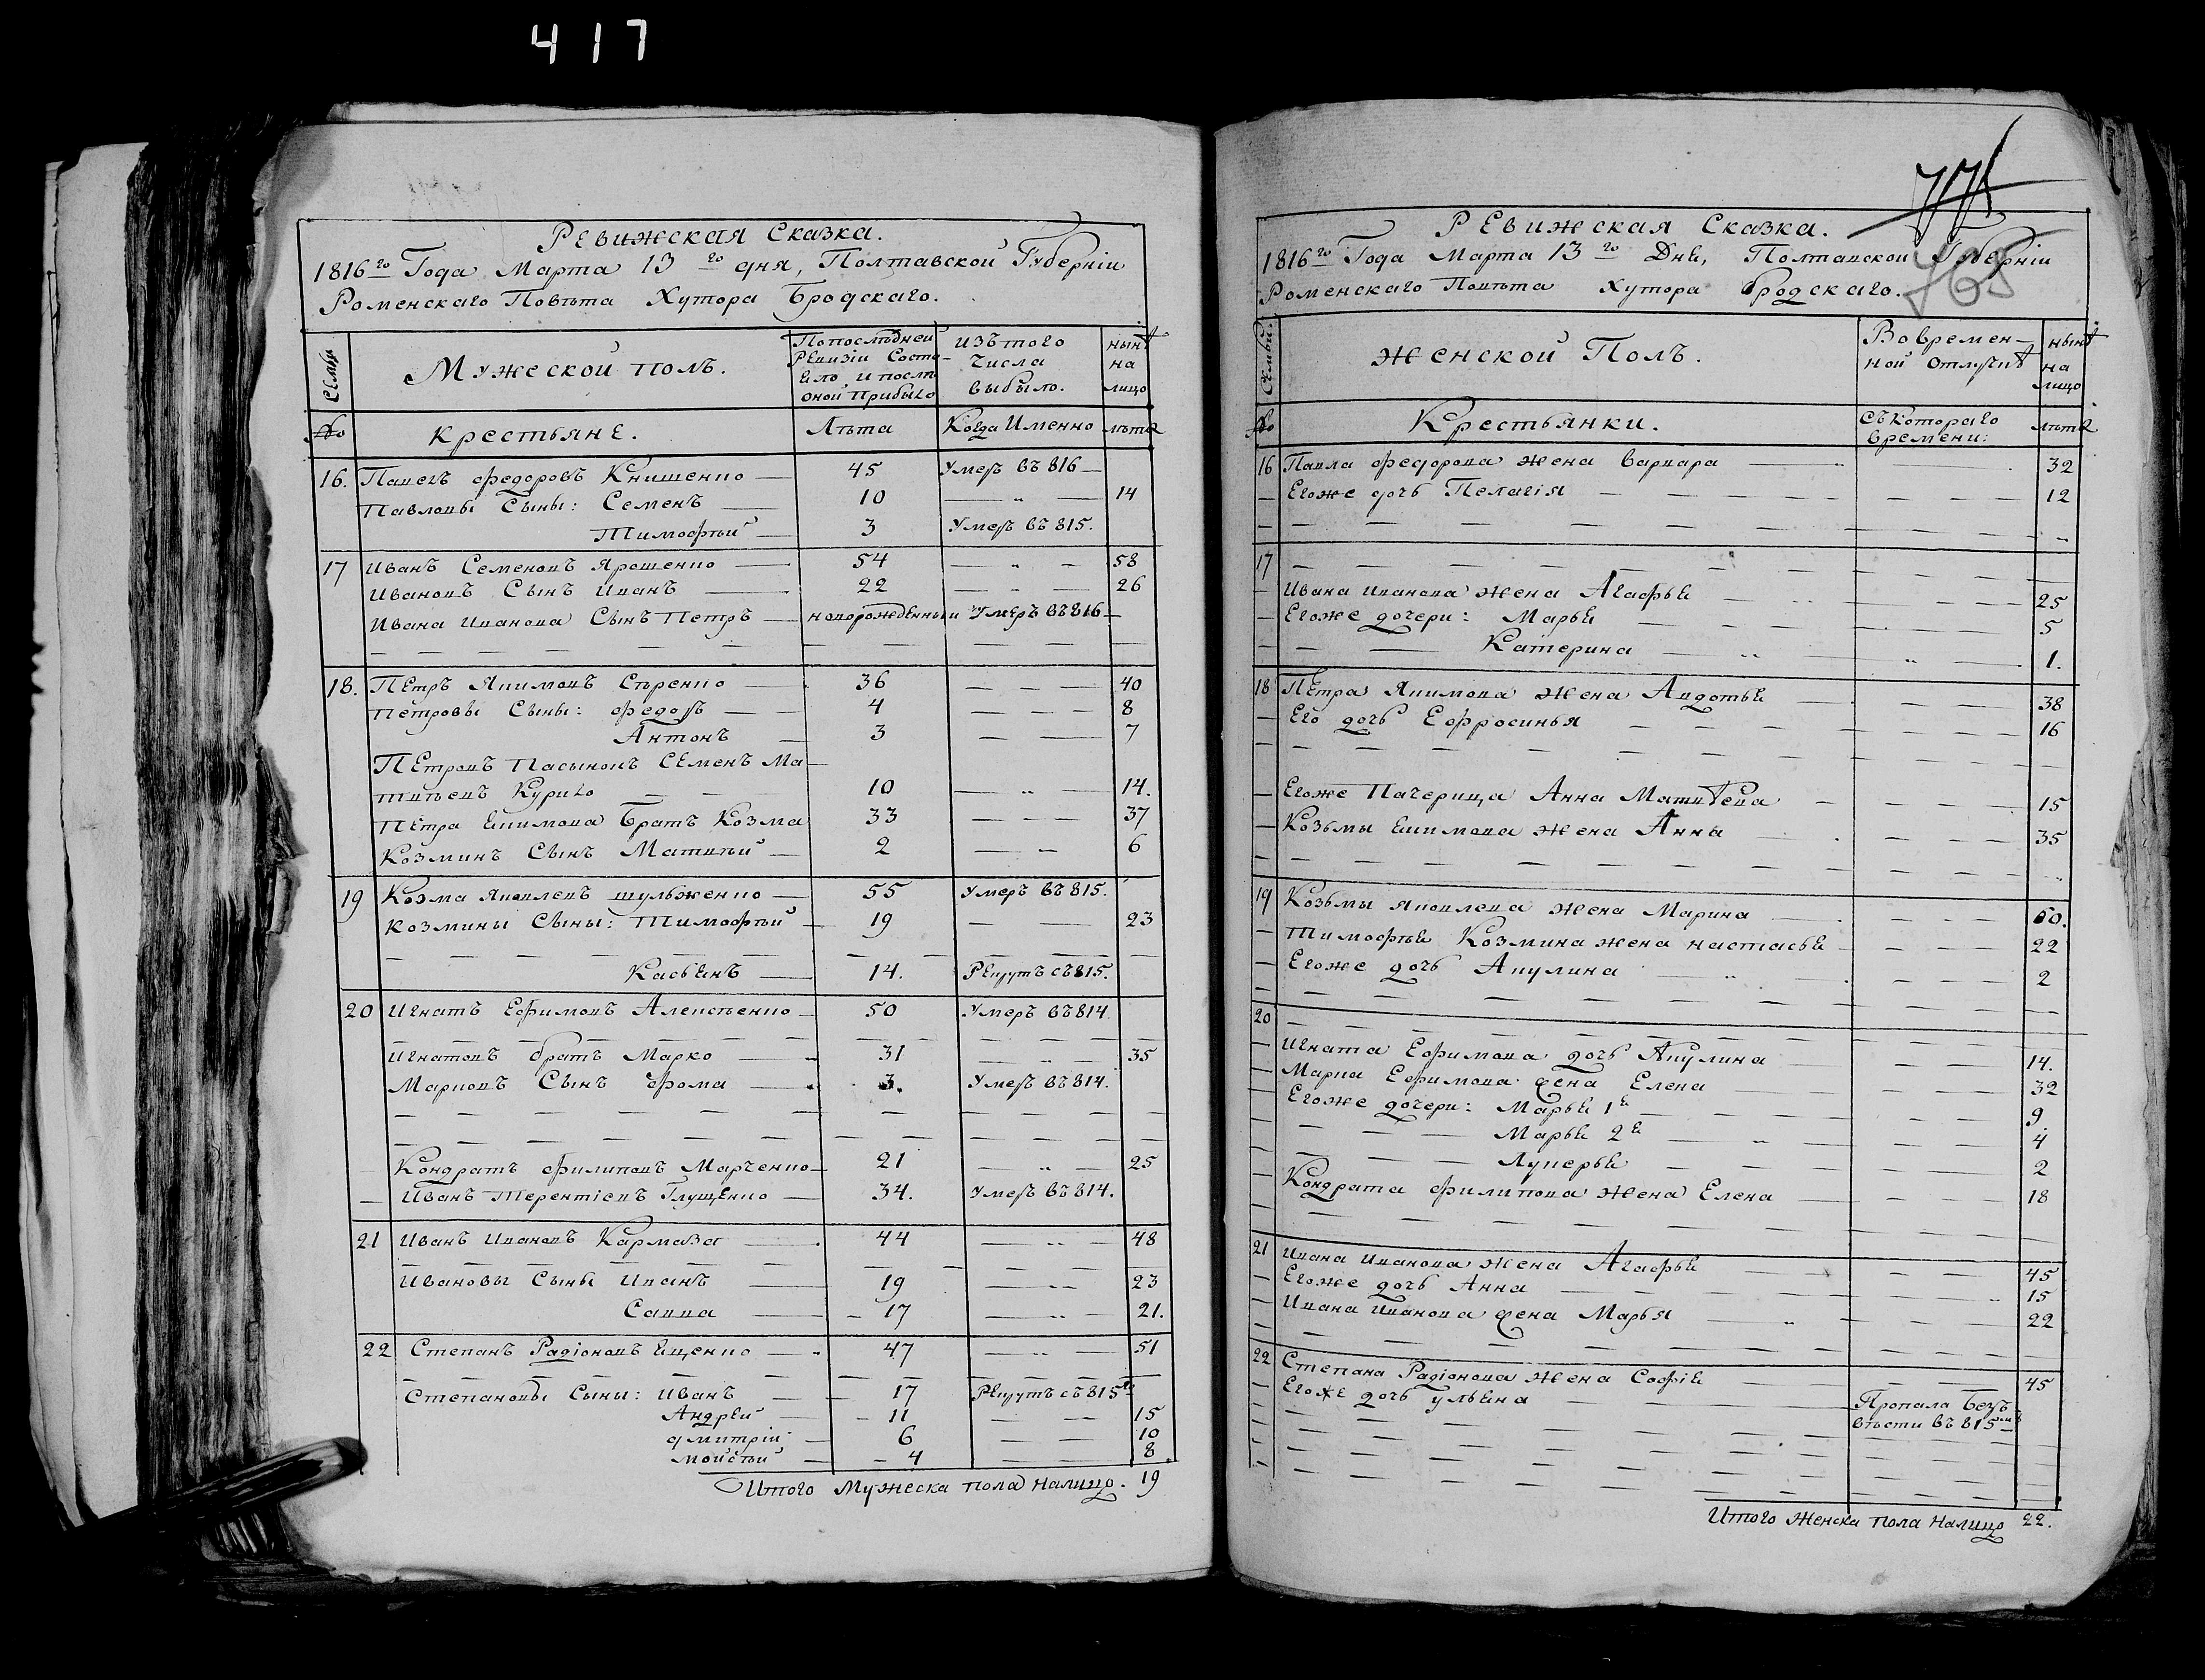 417
Ревижская Сказка.
1816го Года Марта 13го дня, Полтавской Губерніи
Роменскаго Повѣта Хутора Бродскаго.
Семьи
Мужеской полъ.
Попослѣдней
Ревизіи Состо-
яло, и послѣ
оной Прибыло
изътого
числа
выбыло.
нынѣ
на
лицо
№
крестьяне.
Лѣта
Когда Именно
лѣта
16. Павелъ Федоровъ Книшенко — 45 Умеръ въ 816 —
Павловы Сыны: Семенъ — 10 — „ — 14
Тимофѣй — 3 Умеръ въ 815.
17 Иванъ Семеновъ Ярошенко — 54 — „ — 58
Ивановъ Сынъ Иванъ — 22 — „ — 26
Ивана Иванова Сынъ Петръ — новорожденный Умеръ въ 816 —
18. Петръ Якимовъ Сѣренко — 36 — — — 40
Петровы Сыны: Федоръ — — 4 — — — 8
Антонъ — 3 — — 7
Петровъ Пасынокъ Семенъ Ма-
твѣевъ Курило — — 10 — „ — 14.
Петра Екимова Братъ Козма 33 — — — 37
Козминъ Сынъ Матвѣй — 2 — „ 6
19 Козма Яковлевъ шульженко — 55 Умеръ въ 815.
Козмины Сыны: Тимофѣй — 19 — — 23
Касьенъ — 14. Рекрутъ съ 815.
20 Игнатъ Ефимовъ Алексѣенко — 50 Умеръ въ 814
Игнатовъ братъ Марко — „ 31 — „ — 35
Марковъ Сынъ Фома — 3. Умеръ въ 814.
Кондратъ Филиповъ Марченко — 21 — „ — 25
— Иванъ Терентіевъ Глущенко — 34. Умеръ въ 814.
21 Иванъ Ивановъ Кармаза — 44 — „ — 48
Ивановы Сыны Иванъ — 19 — „ 23
Савва — 17 — „ — 21.
22 Степанъ Радіоновъ Ещенко — „ 47 — „ — 51
Степановы Сыны: Иванъ — 17 Рекрутъ съ 815го
Андрей — 11 — — 15
дмитрій — 6 — — 10
мойсѣй — 4 — — 8
Итого Мужеска пола налицо. 19
775
765
Ревижская Сказка.
1816го Года Марта 13го Дне, Полтавской Губерніи
Роменскаго Повѣта Хутора Бродскаго.
Семьи.
женской Полъ.
Вовремен-
ной отлучкѣ
нынѣ
на
лицо
№
Крестьянки.
съкотораго
времени:
лѣта
16 Павла Федорова жена Варвара — 32
— Егоже дочь Пелагія — 12
17
— Ивана Иванова жена Агафье — 25
— Егоже дочери: Марье — 5
Катерина — 1.
18 Петра Якимова жена Авдотье — 38
— Его дочь Ефросинья — 16
— Егоже Пачерица Анна Матвѣева — 15
— Козьмы Екимова жена Анна — 35
19 Козьмы Яковлева жена Марина — 50.
— Тимофѣе Козмина жена настасье — 22
— Егоже дочь Акулина — 2
20
— Игната Ефимова дочь Акулина — 14.
— Марка Ефимова жена Елена — 32
— Егоже дочери: Марье 1е — 9
Марье 2е — „ — 4
Лукерье — 2
— Кондрата Филипова жена Елена — 18
21 Ивана Иванова жена Агафье — 45
— Егоже дочь Анна — 15
— Ивана Иванова жена Марья — 22
22 Степана Радіонова жена Софіе — 45
— Егоже дочь Ульена — Пропала Безъ
вѣсти въ 815мъ
Итого Женска пола налицо 22.